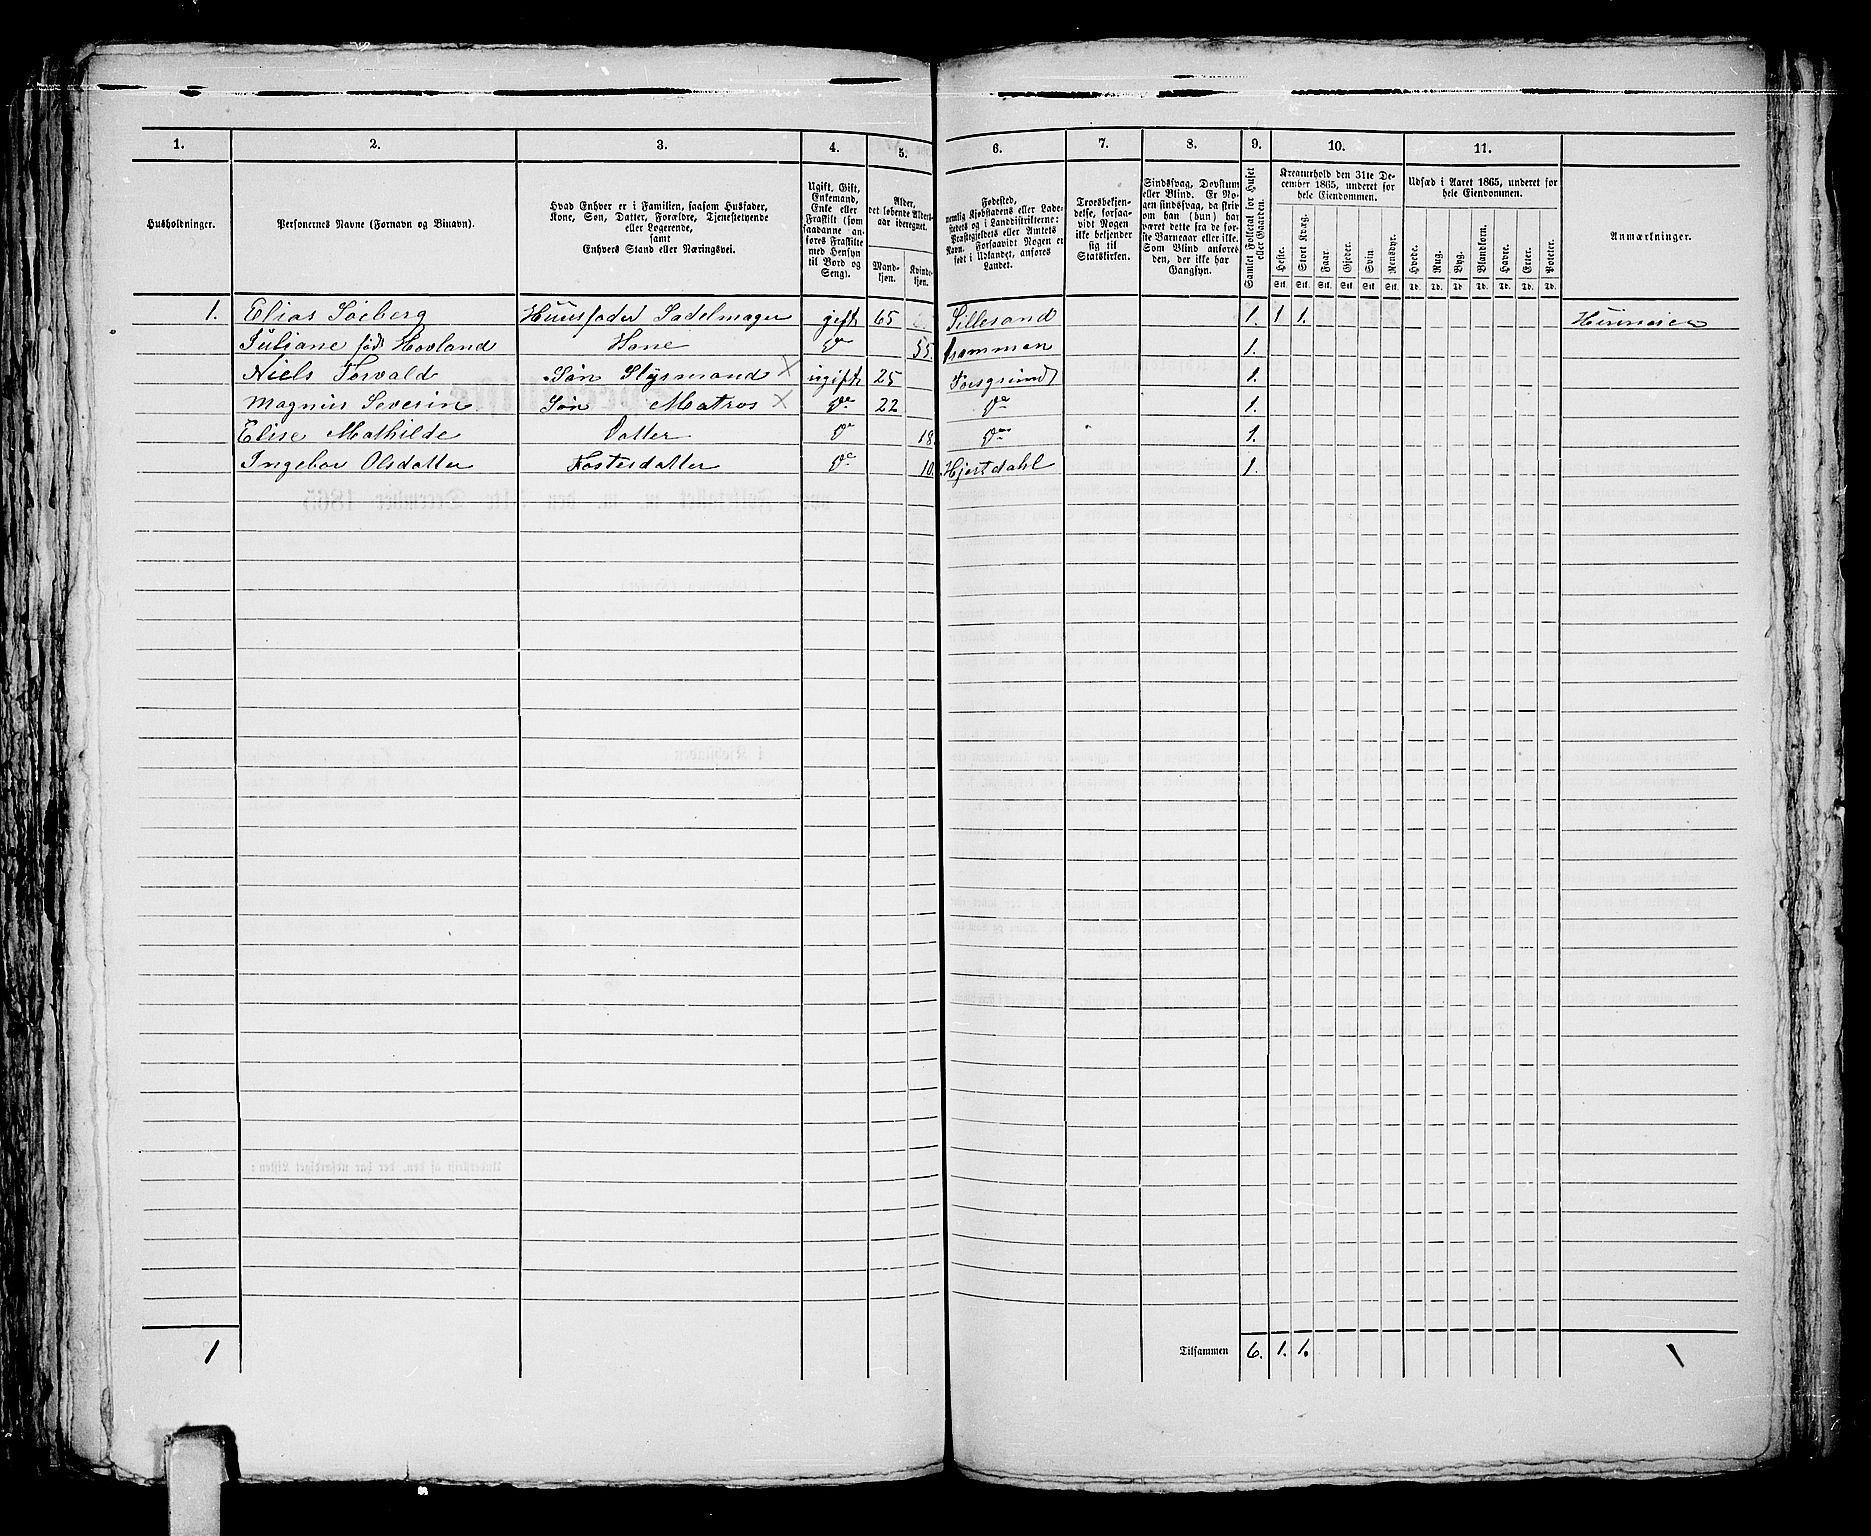 1. 2. 3. 4. 5. 6. 7. 8. 9. 10. 11.
Husholdninger.
Personernes Navne (Fornavn og Binavn).
Hvad Enhver er i Familien, saasom Husfader,
Kone, Søn, Datter, Forældre, Tjenestetyende
eller Logerende,
samt
Enhvers Stand eller Næringsvei.
Ugift, Gift,
Enkemand,
Enke eller
Fraskilt (som
saadanne an-
føres Fraskilte
med Hensyn
til Bord og
Seng).
Alder,
det løbende Alders-
aar iberegnet.
Mand-
kjøn.
Kvinde-
kjøn.
Fødested,
nemlig Kjøbstadens eller Lade-
stedets og i Landdistrikterne:
Præstegjeldets eller Amtets
Navn. Forsaavidt Nogen er
født i Udlandet, anføres
Landet.
Troesbekjen-
delse, forsaa-
vidt Nogen
ikke bekjender
sig til
Statskirken.
Sindssvag, Døvstum
eller Blind. Er No-
gen sindssvag, da skriv
om han (hun) har
været dette fra de før-
ste Barneaar eller ikke.
Som Blind anføres
den, der ikke har
Gangsyn.
Samlet Folketal for Huset
eller Gaarden.
Kreaturhold den 31te De-
cember 1865, underet for
hele Eiendommen.
Heste. Stort Kvæg. Faar. Gjeder. Svin. Rensdyr.
Stk. Stk. Stk. Stk. Stk. Stk.
Udsæd i Aaret 1865, underet for
hele Eiendommen.
Hvede. Rug. Byg. Blandkorn. Havre. Erter. Poteter.
Td. Td. Td. Td. Td. Td. Td.
Anmærkninger.
1. Elias Söeberg Huusfader Sadelmager gift 65 Lillesand 1. 1 1. Huuseier
Juliane født Hovland Kone Do 55. 1.
Niels Torvald Søn Styrmand × ugift 25 Porsgrund 1.
Magnus Severin Søn Matros × Do 22 Do 1.
Elise Mathilde Datter Do 18. Do 1.
Ingebor Olsdatter Fosterdatter Do 10. Hjertdahl 1.
1 Tilsammen 6. 1. 1.